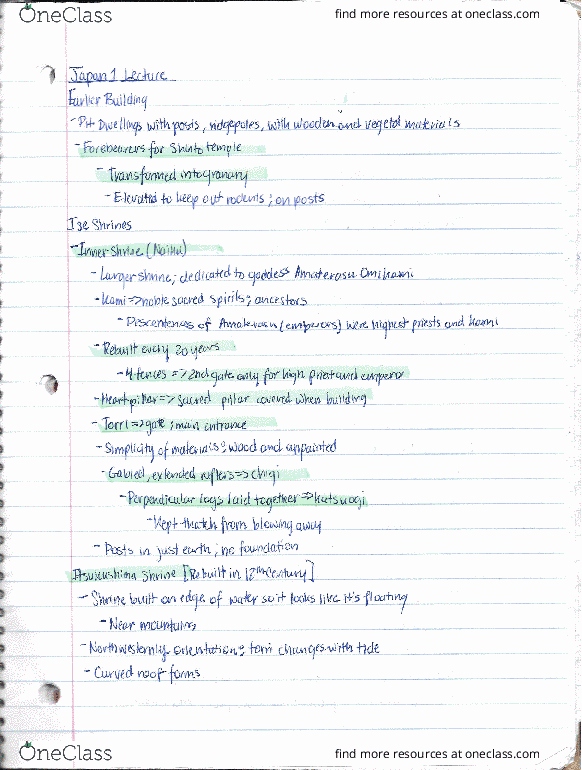 OneClass
find more resources at oneclass.com
Japan 1 Lecture
Earlier Building
- Pit Dwellings with posts, ridgepoles, with wooden and vegetal materials
- Forebearers for Shinto temple
- Transformed into granary
- Elevated to keep out rodents; on posts
Ise Shrines
- Inner Shrine (Naiku)
- Larger shrine; dedicated to goddess Amaterasu Omikami
- Kami => noble sacred spirits; ancestors
- Descendents of Amaterasu (emperors) were highest priests and kami
- Rebuilt every 20 years
- 4 fences => 2nd gate only for high priest and emperor
- Heart pillar => sacred pillar covered when building
- Torri => gate; main entrance
- Simplicity of materials; wood and unpainted
- Gabled, extended rafters => chigi
- Perpendicular logs laid together => katsuogi
- Kept thatch from blowing away
- Posts in just earth; no foundation
Itsukushima Shrine [Rebuilt in 12th century]
- Shrine built on edge of water so it looks like it's floating
- Near mountains
- Northwesternly orientation; torri changes with tide
- Curved roof forms
OneClass
find more resources at oneclass.com